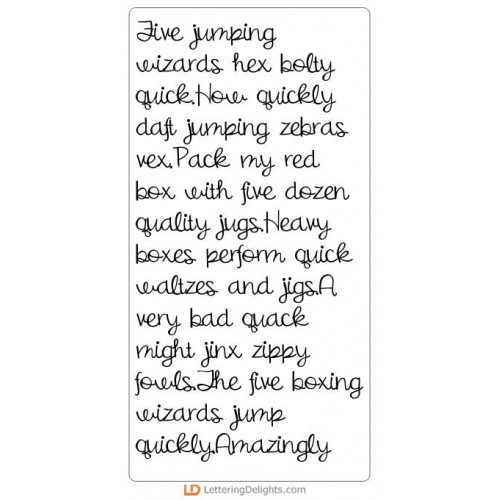 Five jumping
wizards hex bolty
quick.How quickly
daft jumping zebras
vex.Pack my red
box with five dozen
quality jugs.Heavy
boxes perform quick
waltzes and jigs.A
very bad quack
might jinx zippy
fowls.The five boxing
wizards jump
quickly.Amazingly
LD LetteringDelights.com